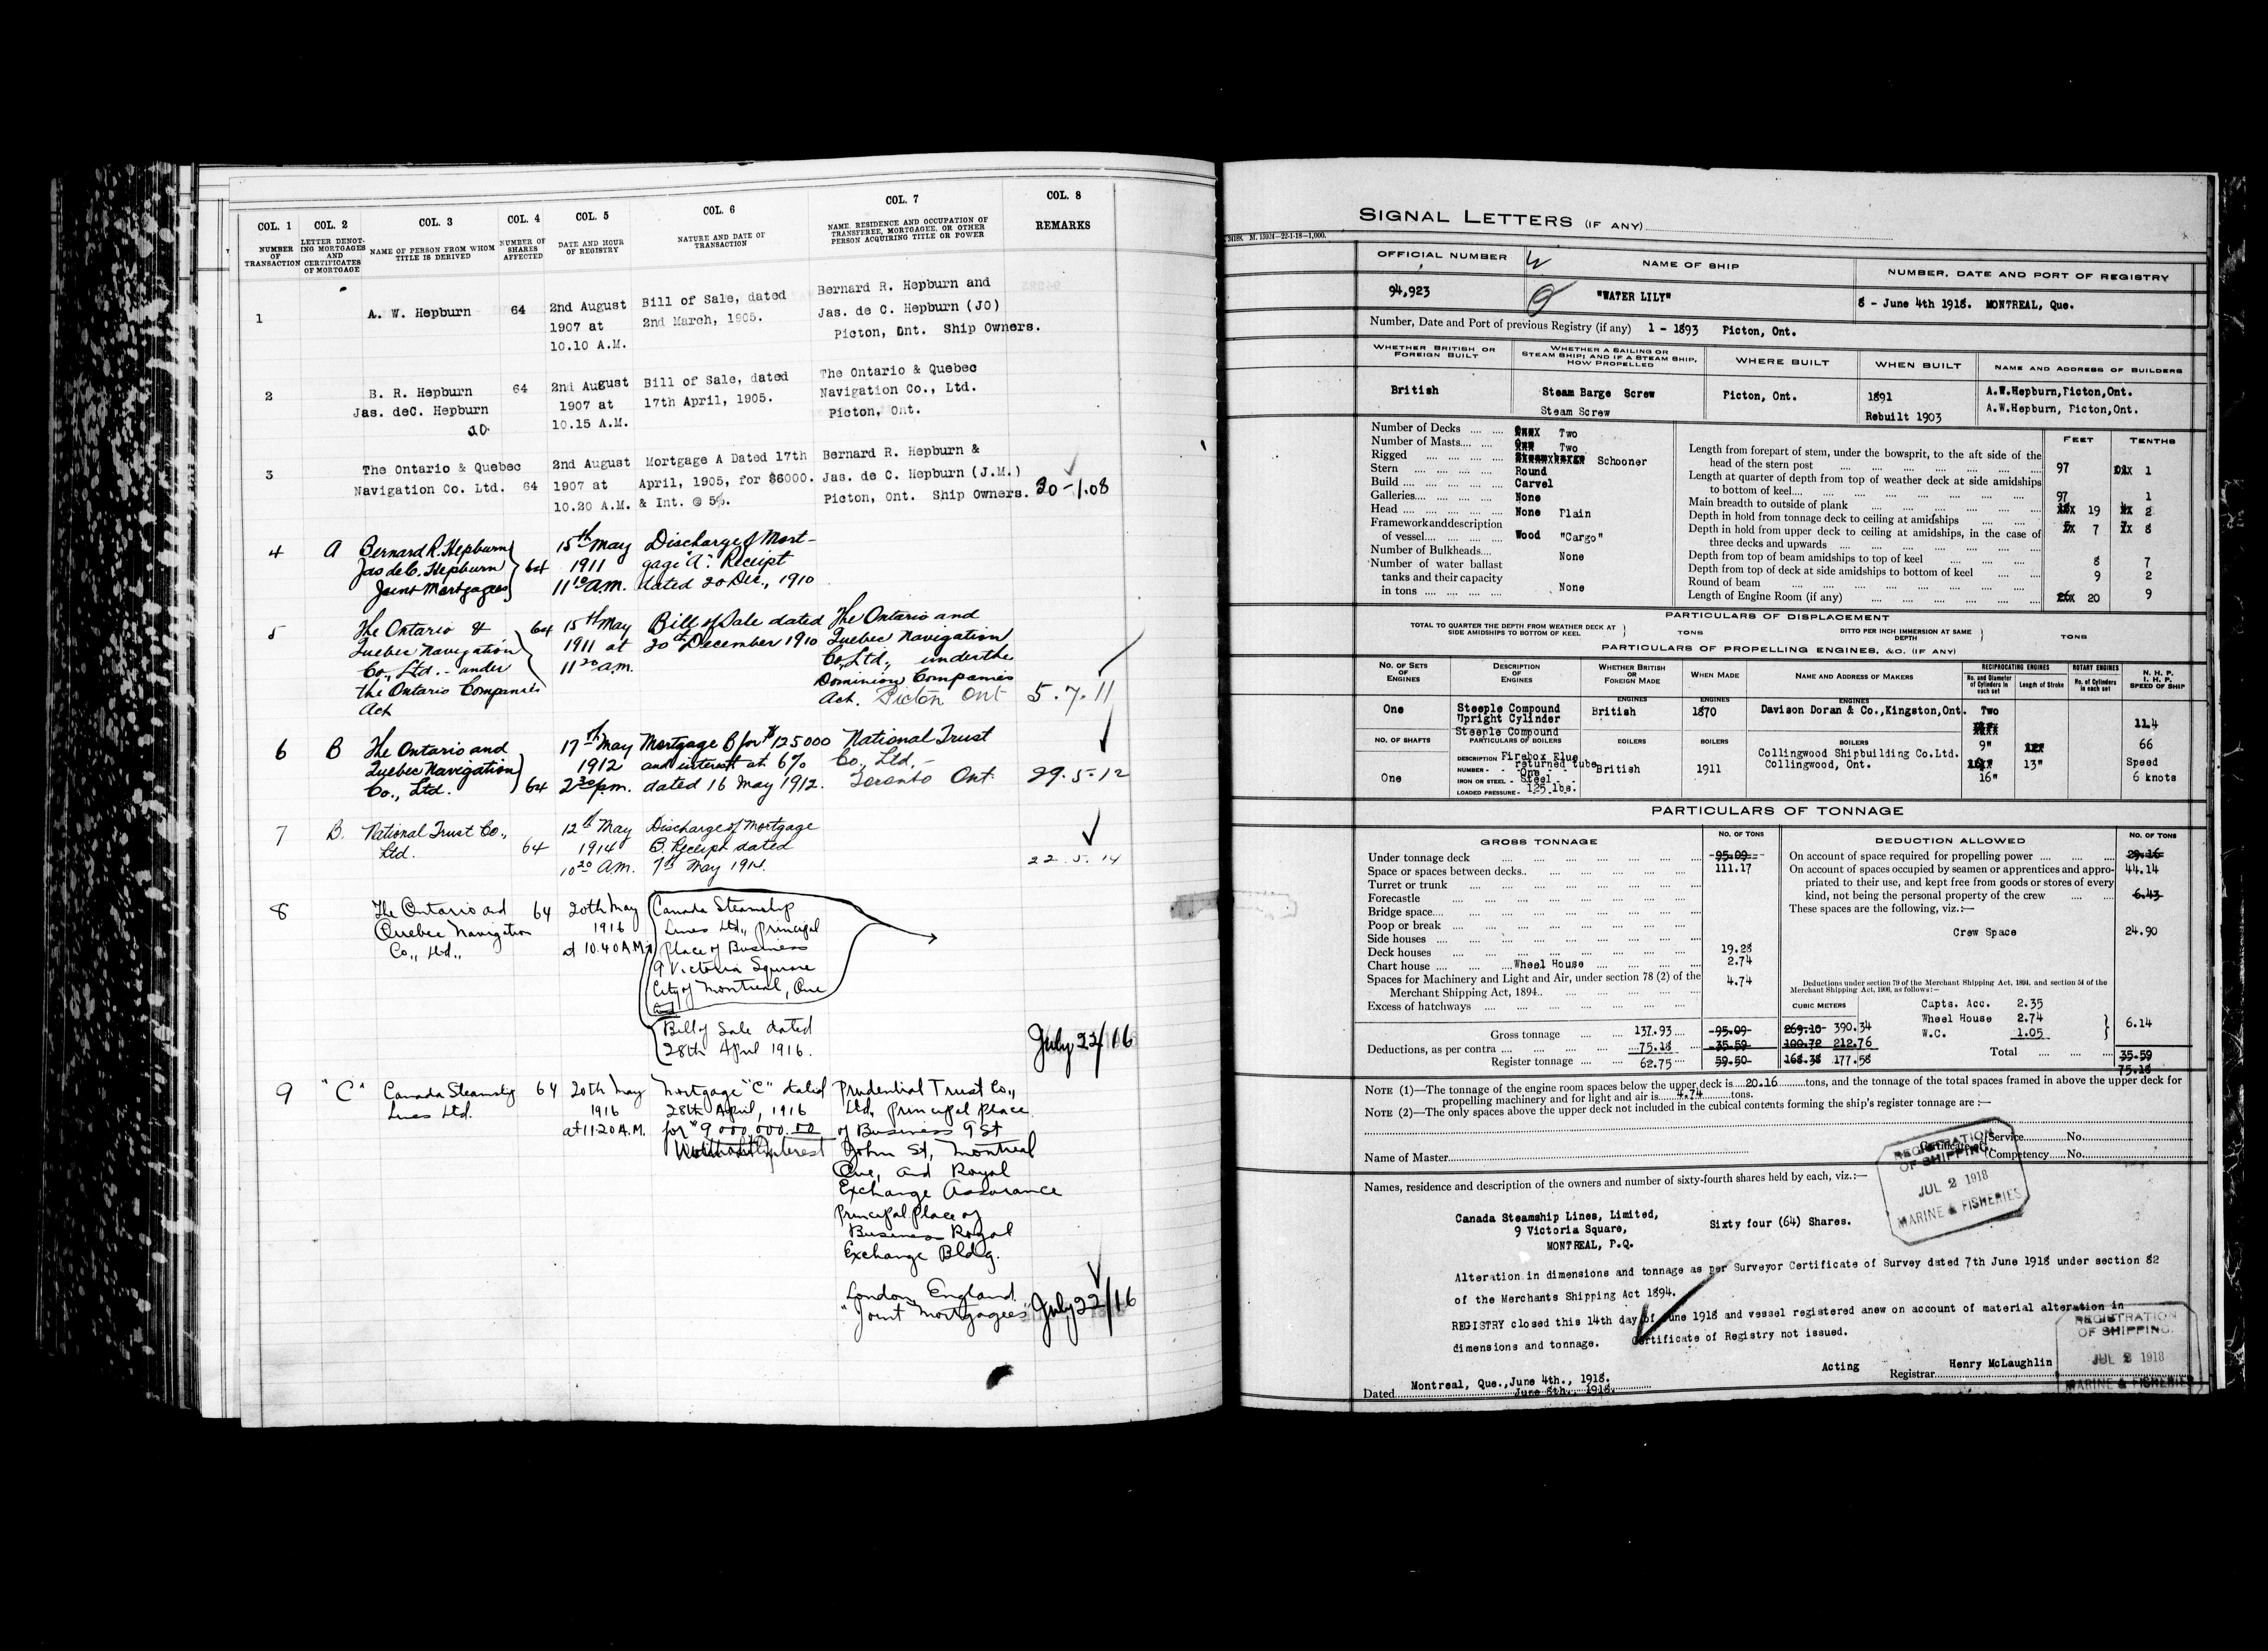 COL. 1 COL. 2 COL. 3 COL. 4 COL. 5 COL. 6 COL. 7 COL. 8
NUMBER OF TRANSACTION
LETTER DENOTING MORTGAGES AND CERTIFICATES OF MORTGAGE
NAME OF PERSON FROM WHOM TITLE IS DERIVED
NUMBER OF SHARES AFFECTED
DATE AND HOUR OF REGISTRY
NATURE AND DATE OF TRANSACTION
NAME, RESIDENCE AND OCCUPATION OF TRANSFEREE, MORTGAGEE, OR OTHER PERSON ACQUIRING TITLE OR POWER
REMARKS
1 A. W. Hepburn 64 2nd August Bill of Sale, dated Bernard R. Hepburn and
1907 at 2nd March, 1905. Jas. de C. Hepburn (JO)
10.10 A.M. Picton, Ont. Ship Owners.
2 B. R. Hepburn 64 2nd August Bill of Sale, dated The Ontario & Quebec
Jas. deC. Hepburn 1907 at 17th April, 1905. Navigation Co., Ltd.
10.15 A.M. Picton, Ont.
3 The Ontario & Quebec 2nd August Mortgage A Dated 17th Bernard R. Hepburn &
Navigation Co. Ltd. 64 1907 at April, 1905, for $6000. Jas. de C. Hepburn (J.M.)
10.20 A.M. & Int. @ 5%. Picton, Ont. Ship Owners. 30-1.08
4 A Bernard R. Hepburn 15th May Discharge of Mort-
Jas de C. Hepburn 64 1911 gage "A". Receipt
Joint Mortgagees 11 10 a.m. dated 20 Dec., 1910
5 The Ontario & 64 15th May Bill of Sale dated The Ontario and
Quebec Navigation 1911 at 20th December 1910 Quebec Navigation
Co., Ltd. - under 11 20 a.m. Co., Ltd., under the
the Ontario Companies Dominion Companies
Act Act. Picton Ont 5.7.11
6 B The Ontario and 17th May Mortgage B for $125000 National Trust
Quebec Navigation 1912 and interest at 6% Co., Ltd. -
Co., Ltd. 64 2 30 p.m. dated 16 May 1912. Toronto Ont. 29.5-12
7 B. National Trust Co., 12th May Discharge of Mortgage
Ltd. 64 1914 B. Receipt dated
10 20 A.M. 7th May 1914. 22.5.14
8 The Ontario and 64 20th May Canada Steamship
Quebec Navigation 1916 Lines Ltd., principal
Co., Ltd., at 10.40 A.M. place of Business
9 Victoria Square
City of Montreal, Que
Bill of Sale dated
28th April 1916. July 22/16
9 "C" Canada Steamship 64 20th May Mortgage "C" dated Prudential Trust Co.,
Lines Ltd. 1916 28th April, 1916 Ltd, principal place
at 11.20 A.M. for $9 000,000.00 of Business 9 St
Without Interest John St, Montreal
Que, and Royal
Exchange Assurance
Principal place of
Business Royal
Exchange Bldg.
London, England.
"Joint Mortgagees" July 22/16
SIGNAL LETTERS (IF ANY)
24188. M. 159M-22-1-18-1,000.
OFFICIAL NUMBER NAME OF SHIP NUMBER, DATE AND PORT OF REGISTRY
94,923 "WATER LILY" 8 - June 4th 1918. MONTREAL, Que.
Number, Date and Port of previous Registry (if any) 1 - 1893 Picton, Ont.
WHETHER BRITISH OR FOREIGN BUILT
WHETHER A SAILING OR STEAM SHIP; AND IF A STEAM SHIP, HOW PROPELLED
WHERE BUILT WHEN BUILT NAME AND ADDRESS OF BUILDERS
British Steam Barge Screw Picton, Ont. 1891 A.W.Hepburn,Picton,Ont.
Steam Screw Rebuilt 1903 A.W.Hepburn, Picton,Ont.
Number of Decks Two
Number of Masts Two
Rigged Schooner
Stern Round
Build Carvel
Galleries None
Head None Plain
Framework and description
of vessel Wood "Cargo"
Number of Bulkheads None
Number of water ballast
tanks and their capacity
in tons None
FEET TENTHS
Length from forepart of stem, under the bowsprit, to the aft side of the
head of the stern post 97 1
Length at quarter of depth from top of weather deck at side amidships
to bottom of keel 97 1
Main breadth to outside of plank 19 2
Depth in hold from tonnage deck to ceiling at amidships 7 8
Depth in hold from upper deck to ceiling at amidships, in the case of
three decks and upwards
Depth from top of beam amidships to top of keel 8 7
Depth from top of deck at side amidships to bottom of keel 9 2
Round of beam
Length of Engine Room (if any) 20 9
PARTICULARS OF DISPLACEMENT
TOTAL TO QUARTER THE DEPTH FROM WEATHER DECK AT SIDE AMIDSHIPS TO BOTTOM OF KEEL TONS DITTO PER INCH IMMERSION AT SAME DEPTH TONS
PARTICULARS OF PROPELLING ENGINES, &C. (IF ANY)
NO. OF SETS OF ENGINES DESCRIPTION OF ENGINES WHETHER BRITISH OR FOREIGN MADE WHEN MADE NAME AND ADDRESS OF MAKERS
RECIPROCATING ENGINES ROTARY ENGINES N. H. P. I. H. P. SPEED OF SHIP
No. and Diameter of Cylinders in each set Length of Stroke No. of Cylinders in each set
ENGINES ENGINES ENGINES
One Steeple Compound British 1870 Davison Doran & Co.,Kingston,Ont. Two
Upright Cylinder 11.4
Steeple Compound
NO. OF SHAFTS PARTICULARS OF BOILERS BOILERS BOILERS BOILERS 9" 66
DESCRIPTION Firebox Flue returned tube British 1911 Collingwood Shipbuilding Co.Ltd.
Collingwood, Ont. 13" Speed
NUMBER One
One IRON OR STEEL Steel 16" 6 knots
LOADED PRESSURE 125 lbs.
PARTICULARS OF TONNAGE
GROSS TONNAGE NO. OF TONS DEDUCTION ALLOWED NO. OF TONS
Under tonnage deck 95.09
Space or spaces between decks 111.17
Turret or trunk
Forecastle
Bridge space
Poop or break
Side houses
Deck houses 19.28
Chart house Wheel House 2.74
Spaces for Machinery and Light and Air, under section 78 (2) of the
Merchant Shipping Act, 1894 4.74
Excess of hatchways
Gross tonnage 137.93 95.09
Deductions, as per contra 75.18 35.59
Register tonnage 62.75 59.50
On account of space required for propelling power 29.16
On account of spaces occupied by seamen or apprentices and appro- 44.14
priated to their use, and kept free from goods or stores of every
kind, not being the personal property of the crew 6.43
These spaces are the following, viz.:—
Crew Space 24.90
Deductions under section 79 of the Merchant Shipping Act, 1894, and section 54 of the
Merchant Shipping Act, 1906, as follows:—
CUBIC METERS Capts. Acc. 2.35
269.10 390.34 Wheel House 2.74 6.14
100.72 212.76 W.C. 1.05
168.38 177.58 Total 35.59
75.18
NOTE (1)—The tonnage of the engine room spaces below the upper deck is 20.16 tons, and the tonnage of the total spaces framed in above the upper deck for
propelling machinery and for light and air is 4.74 tons.
NOTE (2)—The only spaces above the upper deck not included in the cubical contents forming the ship's register tonnage are :—
Certificate of Service No.
Name of Master Competency No.
REGISTRATION
OF SHIPPING
JUL 2 1918
MARINE & FISHERIES
Names, residence and description of the owners and number of sixty-fourth shares held by each, viz.:—
Canada Steamship Lines, Limited,
9 Victoria Square, Sixty four (64) Shares.
MONTREAL, P.Q.
Alteration in dimensions and tonnage as per Surveyor Certificate of Survey dated 7th June 1918 under section 82
of the Merchants Shipping Act 1894.
REGISTRY closed this 14th day of June 1918 and vessel registered anew on account of material alteration in
dimensions and tonnage. Certificate of Registry not issued.
REGISTRATION
OF SHIPPING.
JUL 2 1918
MARINE & FISHERIES
Acting Henry McLaughlin
Registrar
Dated Montreal, Que.,June 4th., 1918.
June 8th., 1918.